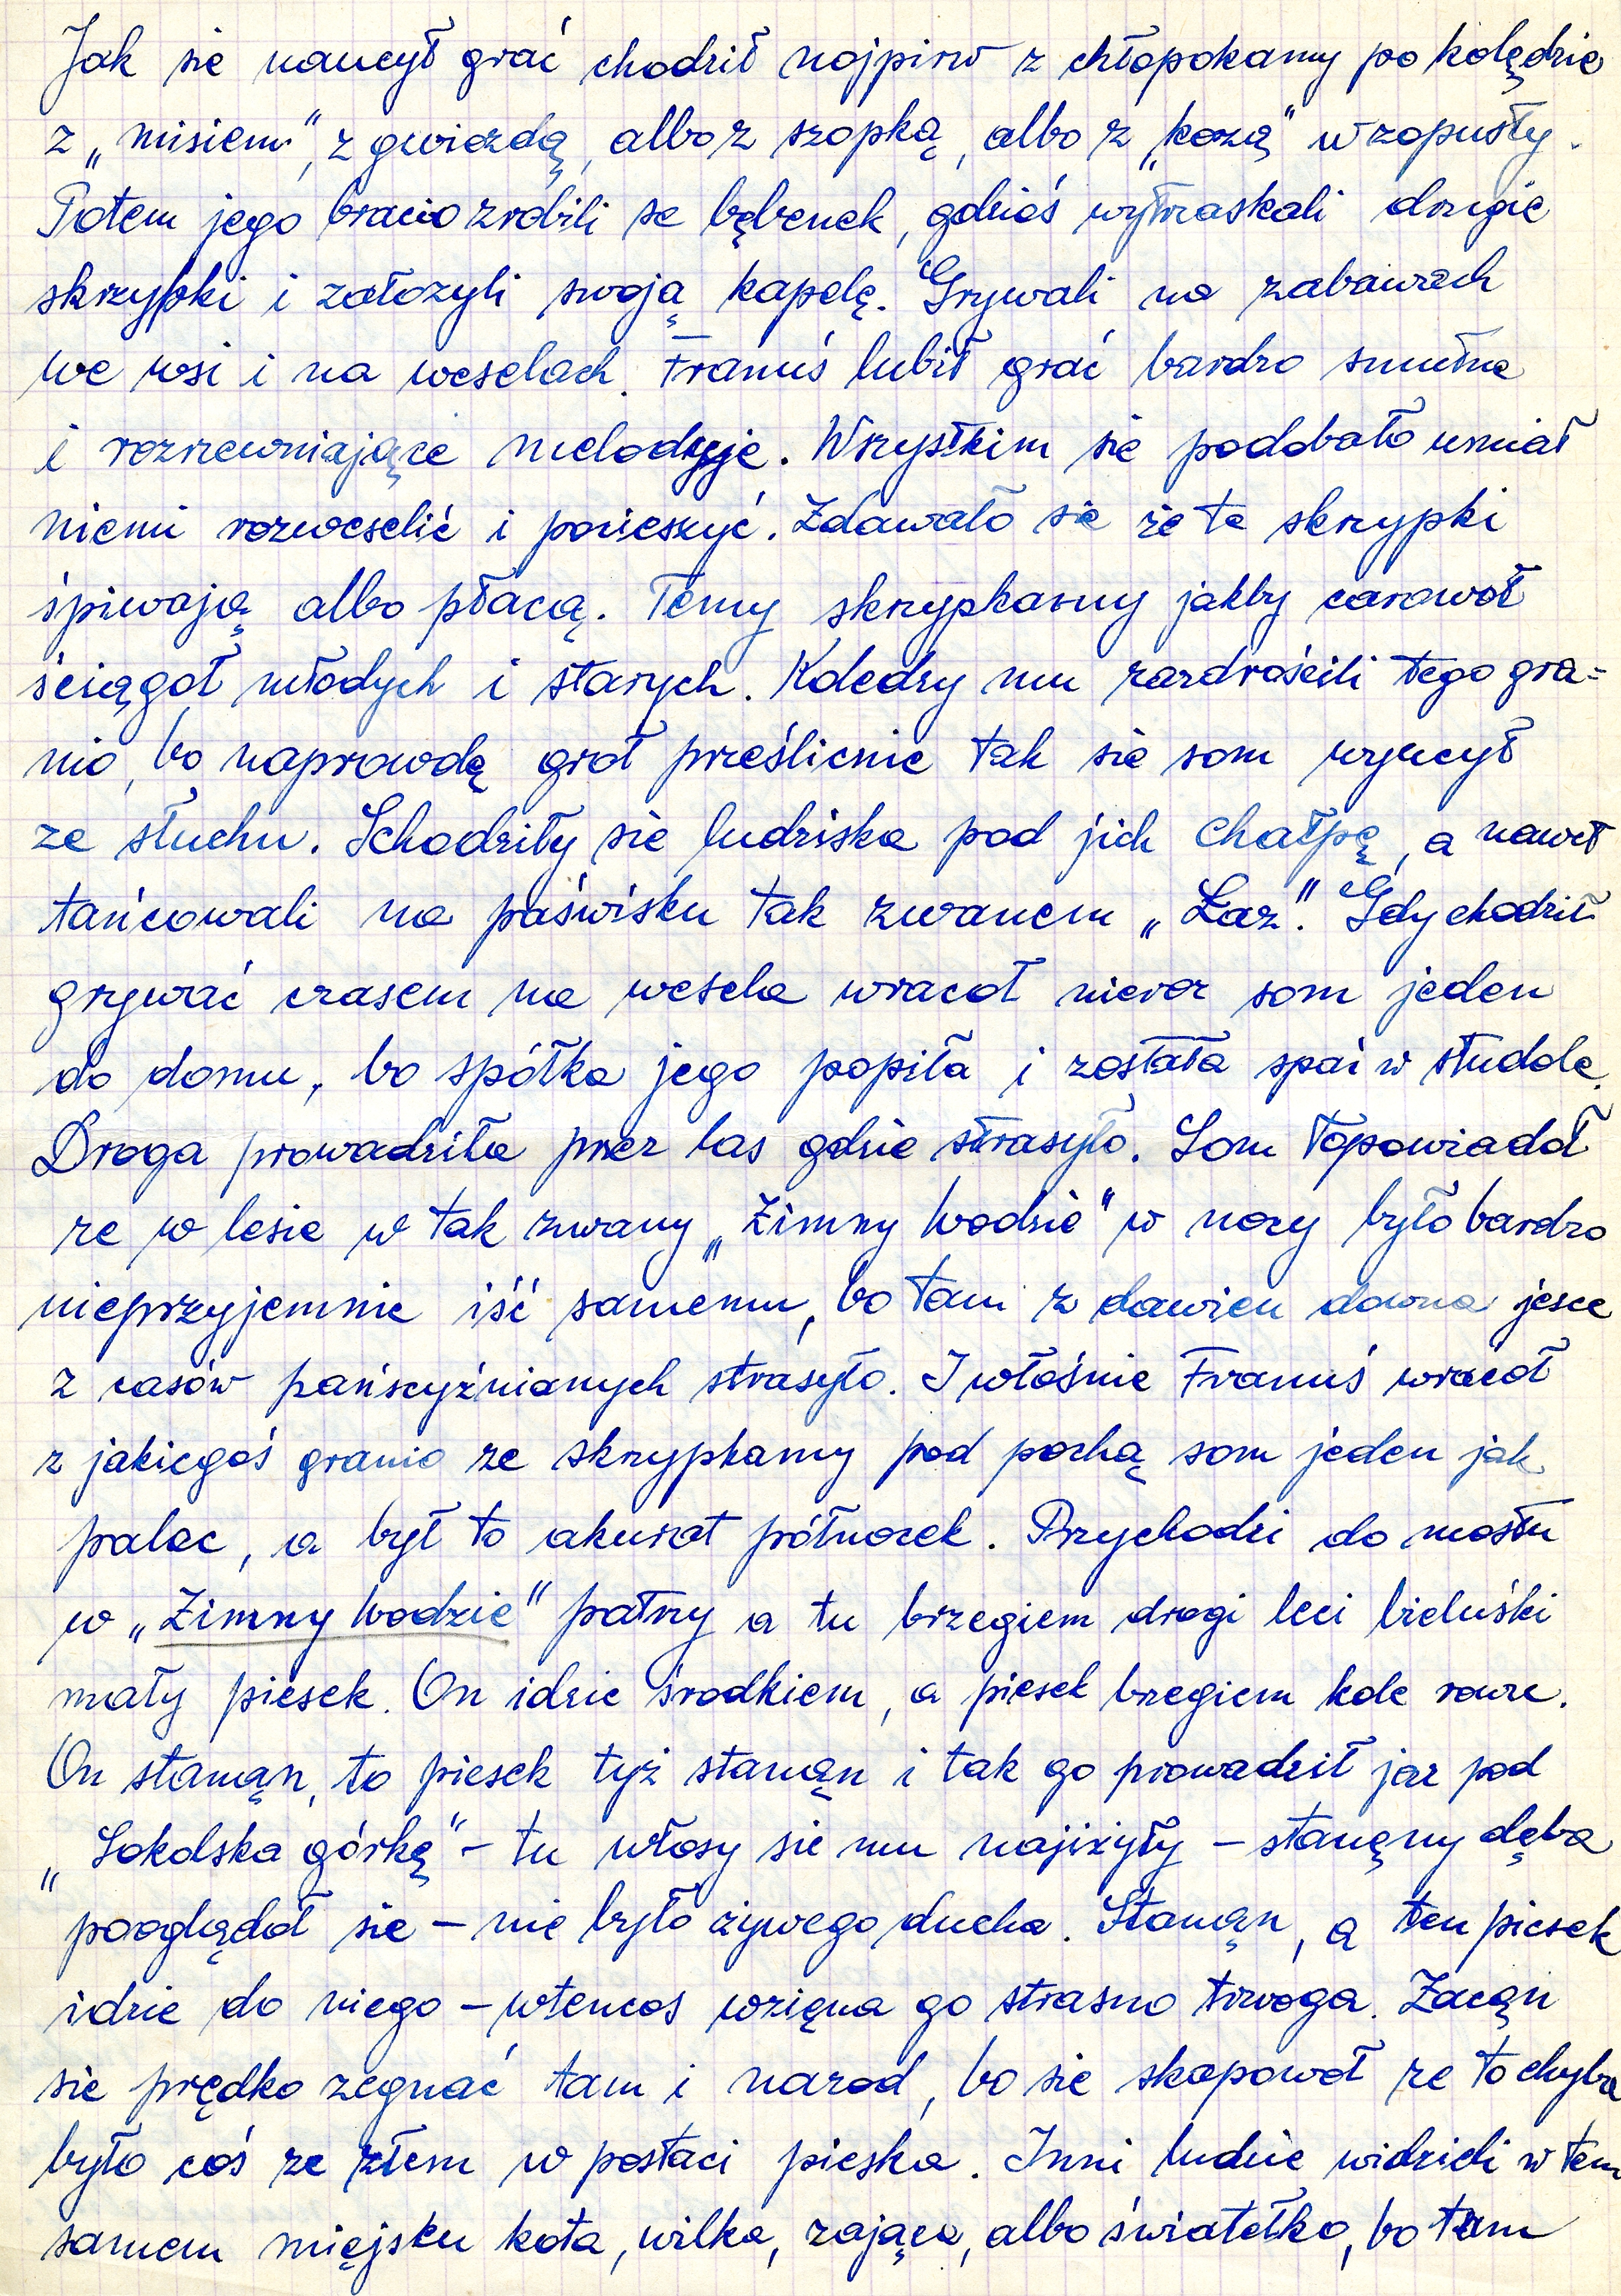 Jak sie naucył grać chodził nojpirw z chłopokamy po kolędzie
z „misiem", z gwiozdą, albo z szopką, albo z „kozą" w zopusty.
Potem jego bracio zrobili se bębenek, gdzieś wytraskali drugie
skrzypki i założyli swoją kapelę. Grywali na zabawach
we wsi i na weselach. Franuś lubił grać bardzo smutne
i rozrzewniające melodyje. Wszystkim sie podobało umiał
niemi rozweselić i pocieszyć. Zdawało sie że te skrzypki
śpiwają albo płacą. Temy skrzypkamy jakby carowoł
ściągoł młodych i starych. Koledzy mu zazdrościli tego gra=
nio, bo naprowdę groł prześlicnie tak sie som wyucył
ze słuchu. Schodziły sie ludziska pod jich chałpę, a nawet
tańcowali na paświsku tak zwanem „Łaz". Gdy chodził
grywać czasem na wesela wracoł nieroz som jeden
do domu, bo spółka jego popiła i została spać w studole.
Droga prowadziła przez las gdzie strasyło. Som to powiadoł
ze w lesie w tak zwany „Zimny Wodzie" w nocy było bardzo
nieprzyjemnie iść samemu, bo tam z dawien dawna jesce
z casów pańscyźnianych strasyło. I włośnie Franuś wracoł
z jakiegoś granio ze skrzypkamy pod pochą som jeden jak
palec, a był to akurat północek. Przychodzi do mostu
w „Zimny Wodzie" patrzy a tu brzegiem drogi leci bieluśki
mały piesek. On idzie środkiem, a piesek brzegiem kole rowu.
On stanąn, to piesek tyż stanąn i tak go prowadził jaz pod
„Sokolska górkę" – tu włosy sie mu najiżyły – stanęny dęba
pooglądoł sie – nie było żywego ducha. Stanąn, a ten piesek
idzie do niego – wtencos wzięna go strasno trwoga. Zacąn
sie prędko zegnać tam i narod, bo sie skapowoł ze to chyba
było coś ze złem w postaci pieska. Inni ludzie widzieli w tem
samem miejsku kota, wilka, zająca, albo światełko, bo tam